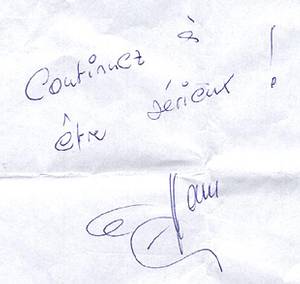 Continuez à
être sérieux !